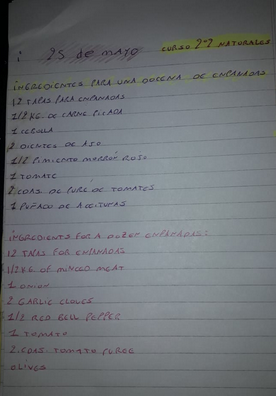 25 de mayo CURSO 2º2 NATURALES
INGREDIENTES PARA UNA DOCENA DE EMPANADAS
12 TAPAS PARA EMPANADAS
1/2 KG. DE CARNE PICADA
1 CEBOLLA
2 DIENTES DE AJO
1/2 PIMIENTO MORRÓN ROJO
1 TOMATE
2 CDAS. DE PURÉ DE TOMATES
1 PUÑADO DE ACEITUNAS
INGREDIENTS FOR A DOZEN EMPANADAS:
12 TAPAS FOR EMPANADAS
1/2 KG OF MINCED MEAT
1 ONION
2 GARLIC CLOVES
1/2 RED BELL PEPPER
1 TOMATO
2 CDAS. TOMATO PUREE
OLIVES